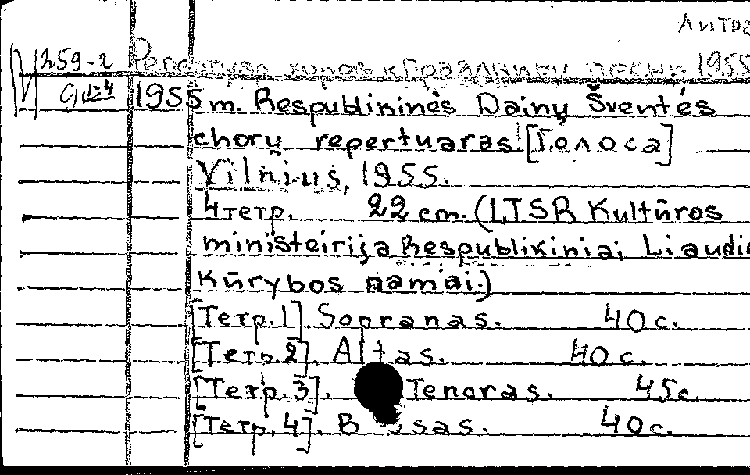 Литов
V 259-2 Репертуар хоров к Празднику песни 1955
1955 m. Respublikinės Dainų Šventės
chorų repertuaras [Голоса]
Vilnius, 1955.
4 тетр. 22 cm. (LTSR Kultūros
ministeirija Respublikiniai Liaudie
Kūrybos namai.)
[Тетр. 1] Sopranas. 40 c.
[Тетр. 2]. Altas. 40 c.
[Тетр. 3]. Tenoras. 45 c
[Тетр. 4]. B sas. 40 c.